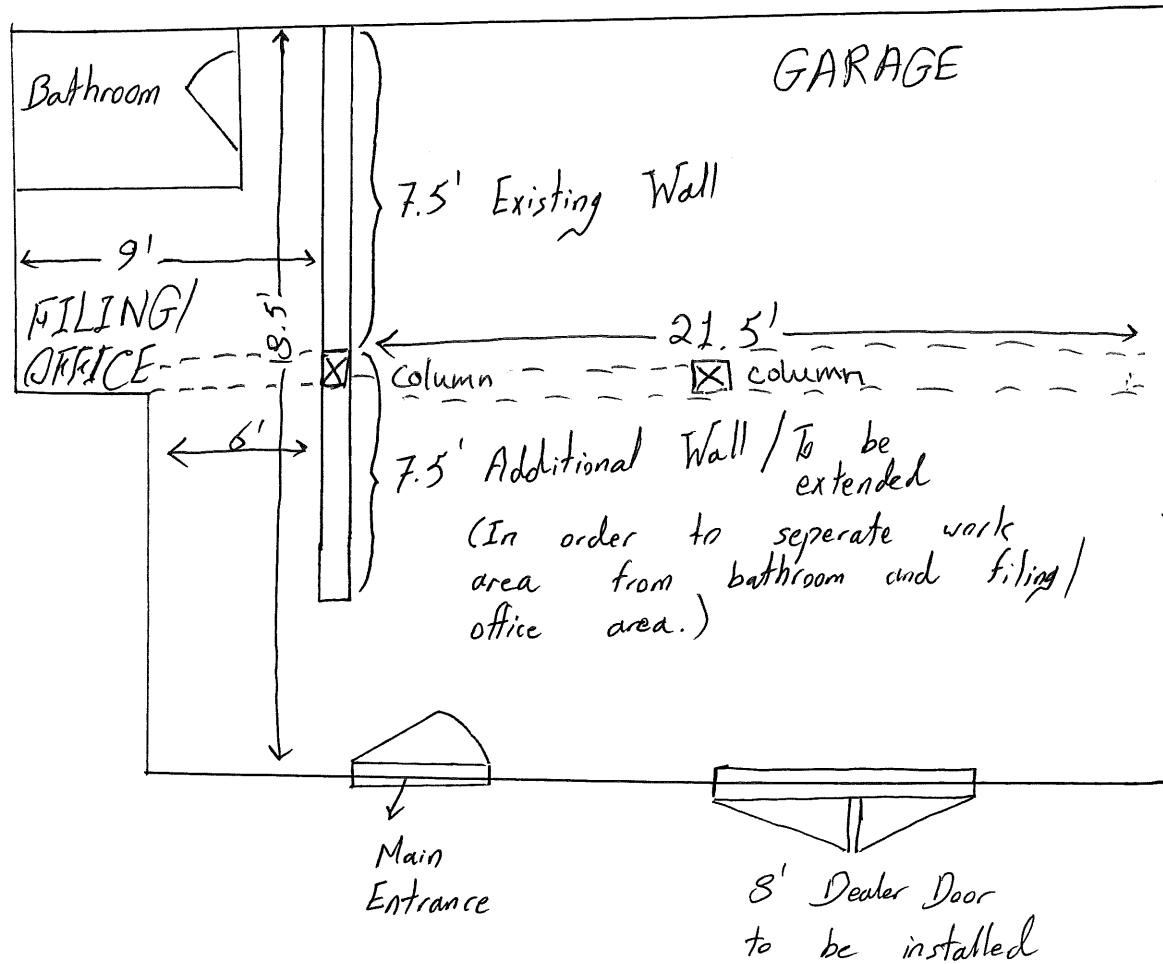 GARAGE
Bathroom
7.5' Existing Wall
9'
FILING/
OFFICE
18.5'
21.5'
column
column
6'
7.5' Additional Wall / To be
extended
(In order to seperate work
area from bathroom and filing/
office area.)
Main
Entrance
8' Dealer Door
to be installed